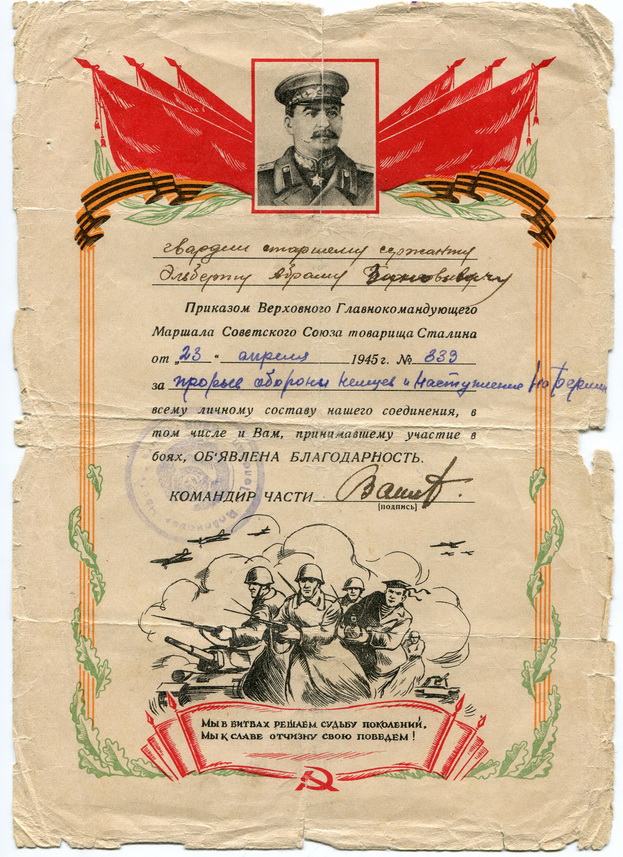 гвардии старшему сержанту
Эльберту Абраму
Приказом Верховного Главнокомандующего
Маршала Советского Союза товарища Сталина
от „23“ апреля 1945 г. № 339
за прорыв обороны немцев и наступление на Берлин
всему личному составу нашего соединения, в
том числе и Вам, принимавшему участие в
боях, ОБ'ЯВЛЕНА БЛАГОДАРНОСТЬ.
КОМАНДИР ЧАСТИ
[подпись]
МЫ В БИТВАХ РЕШАЕМ СУДЬБУ ПОКОЛЕНИЙ,
МЫ К СЛАВЕ ОТЧИЗНУ СВОЮ ПОВЕДЕМ!